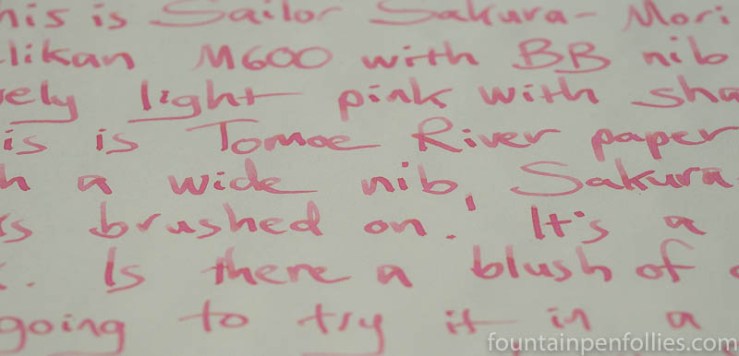 his is Sailor Sakura-Mori
likan M600 with BB nib
ely light pink with sha
is is Tomoe River paper
h a wide nib, Sakura
s brushed on.' It's a
. Is there a blush of
going to try it in a
fountainpenfollies.com